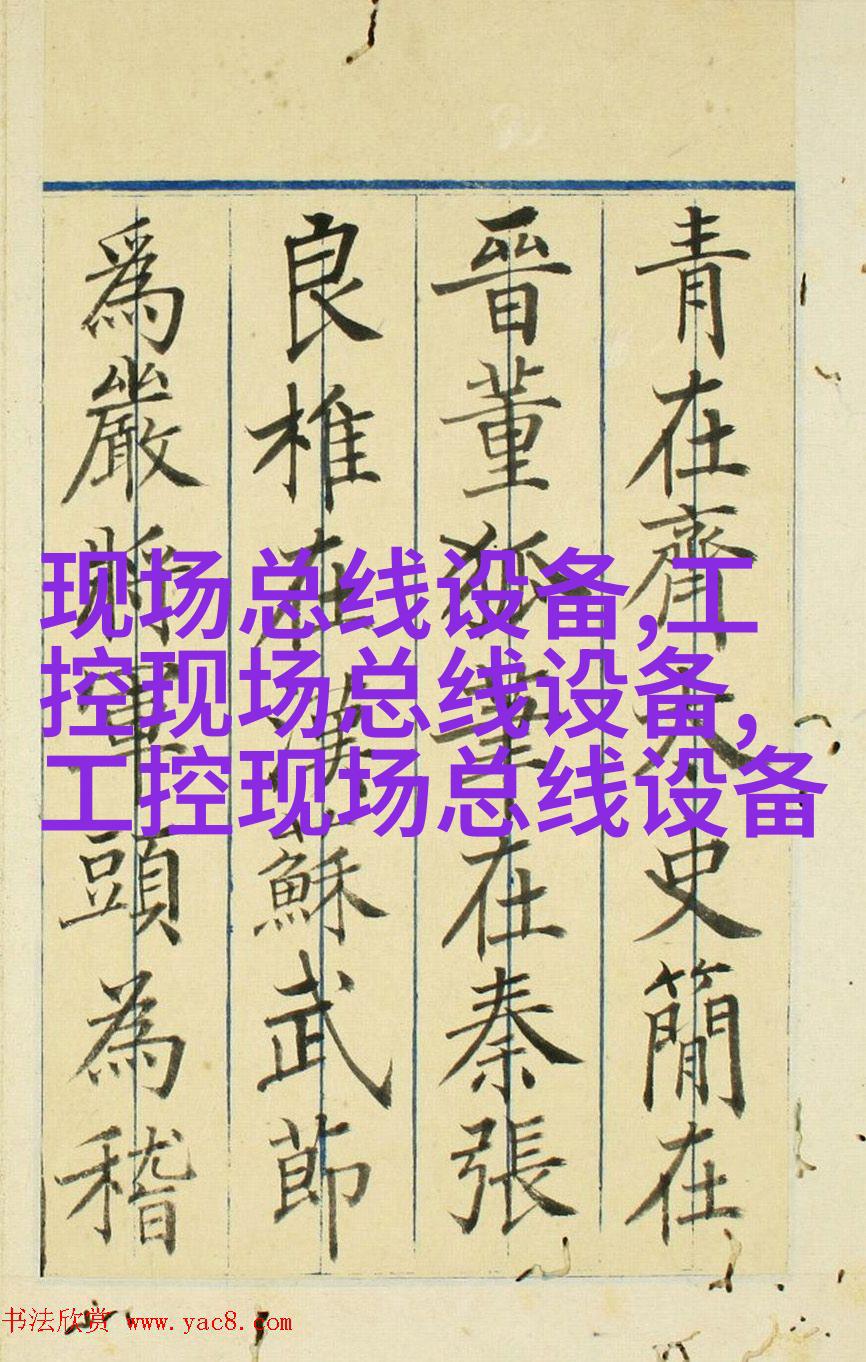 青在齊太史簡在
晉董狐筆在秦張
良椎在漢蘇武節
爲嚴將軍頭為稽
现场总线设备,工
控现场总线设备,
工控现场总线设备
书法欣赏 www.yac8.com